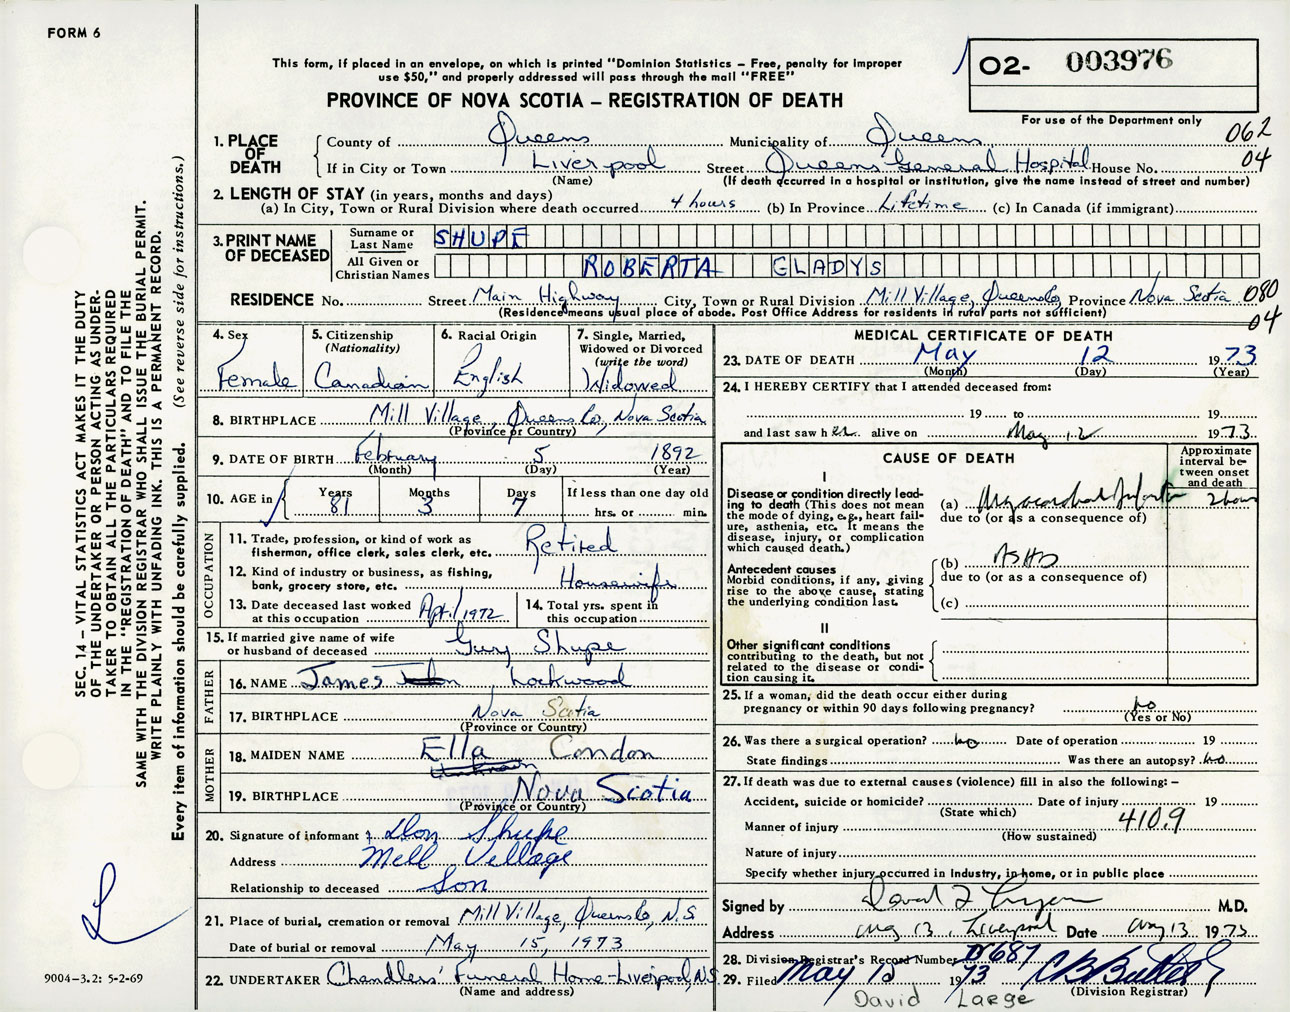 FORM 6
This form, if placed in an envelope, on which is printed "Dominion Statistics – Free, penalty for improper
use $50," and properly addressed will pass through the mail "FREE"
PROVINCE OF NOVA SCOTIA – REGISTRATION OF DEATH
O2- 003976
For use of the Department only
062
04
1. PLACE OF DEATH
County of Queens Municipality of Queens
If in City or Town Liverpool Street Queens General Hospital House No.
(Name) (If death occurred in a hospital or institution, give the name instead of street and number)
2. LENGTH OF STAY (in years, months and days)
(a) In City, Town or Rural Division where death occurred 4 hours (b) In Province Lifetime (c) In Canada (if immigrant)
3. PRINT NAME OF DECEASED
Surname or Last Name SHUPE
All Given or Christian Names ROBERTA GLADYS
RESIDENCE No. Street Main Highway City, Town or Rural Division Mill Village, Queens Co, Province Nova Scotia 080
(Residence means usual place of abode. Post Office Address for residents in rural parts not sufficient) 04
4. Sex Female
5. Citizenship (Nationality) Canadian
6. Racial Origin English
7. Single, Married, Widowed or Divorced (write the word) Widowed
8. BIRTHPLACE Mill Village, Queens Co, Nova Scotia
(Province or Country)
9. DATE OF BIRTH February 5 1892
(Month) (Day) (Year)
10. AGE in Years 81 Months 3 Days 7 If less than one day old
hrs. or min.
OCCUPATION
11. Trade, profession, or kind of work as fisherman, office clerk, sales clerk, etc. Retired
12. Kind of industry or business, as fishing, bank, grocery store, etc. Housewife
13. Date deceased last worked at this occupation April 1972
14. Total yrs. spent in this occupation
15. If married give name of wife or husband of deceased Guy Shupe
FATHER
16. NAME James John Lockwood
17. BIRTHPLACE Nova Scotia
(Province or Country)
MOTHER
18. MAIDEN NAME Ella Condon
Unknown
19. BIRTHPLACE Nova Scotia
(Province or Country)
20. Signature of informant Don Shupe
Address Mill Village
Relationship to deceased Son
21. Place of burial, cremation or removal Mill Village, Queens Co, N.S.
Date of burial or removal May 15, 1973
22. UNDERTAKER Chandlers' Funeral Home - Liverpool, N.S.
(Name and address)
MEDICAL CERTIFICATE OF DEATH
23. DATE OF DEATH May 12 1973
(Month) (Day) (Year)
24. I HEREBY CERTIFY that I attended deceased from:
19 to 19
and last saw her alive on May 12 1973
CAUSE OF DEATH
Approximate interval between onset and death
I
Disease or condition directly leading to death (This does not mean the mode of dying, e.g., heart failure, asthenia, etc. It means the disease, injury, or complication which caused death.)
(a) Myocardial Infarction 2 hours
due to (or as a consequence of)
Antecedent causes
Morbid conditions, if any, giving rise to the above cause, stating the underlying condition last.
(b) ASHD
due to (or as a consequence of)
(c)
II
Other significant conditions
contributing to the death, but not related to the disease or condition causing it.
25. If a woman, did the death occur either during pregnancy or within 90 days following pregnancy? no
(Yes or No)
26. Was there a surgical operation? no Date of operation 19
State findings Was there an autopsy? no
27. If death was due to external causes (violence) fill in also the following: –
Accident, suicide or homicide? Date of injury 19
(State which)
Manner of injury 410.9
(How sustained)
Nature of injury
Specify whether injury occurred in Industry, in home, or in public place
Signed by David M.D.
Address Liverpool Date 13 1973
28. Division Registrar's Record Number 687
29. Filed May 1973
(Division Registrar)
David Large
SEC. 14 – VITAL STATISTICS ACT MAKES IT THE DUTY
OF THE UNDERTAKER OR PERSON ACTING AS UNDER-
TAKER TO OBTAIN ALL THE PARTICULARS REQUIRED
IN THE "REGISTRATION OF DEATH" AND TO FILE THE
SAME WITH THE DIVISION REGISTRAR WHO SHALL ISSUE THE BURIAL PERMIT.
WRITE PLAINLY WITH UNFADING INK. THIS IS A PERMANENT RECORD.
Every item of information should be carefully supplied. (See reverse side for instructions.)
9004-3.2: 5-2-69